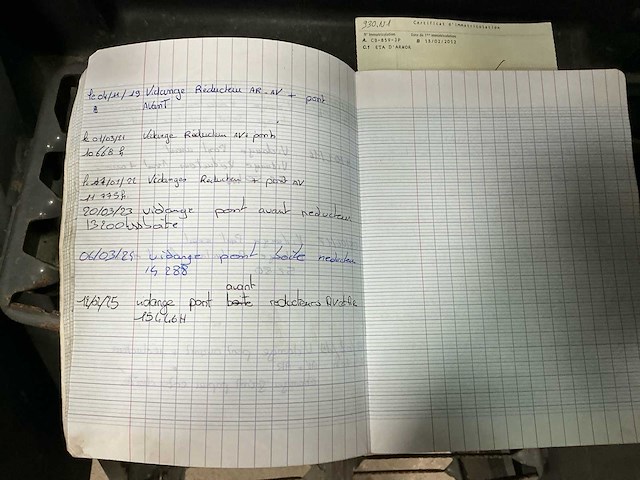 930.VA1
Certificat d'immatriculation
N° immatriculation Date de 1ère immatriculation
A CB-859-JP B 15/02/2012
C1 ETA D'ARMOR
Le 04/11/19 Vidange Réducteur AR-AV + pont
Avant
Le 01/03/21 Vidange Réducteur AV+ pont
10668 h
Le 27/01/22 Vidanges Réducteur + pont AV
11 773h
20/03/23 vidange pont avant reducteur
13200 boite
06/03/24 vidange pont boite reducteur
14 288
avant
vidange pont boite reducteurs AV et AR
15446H